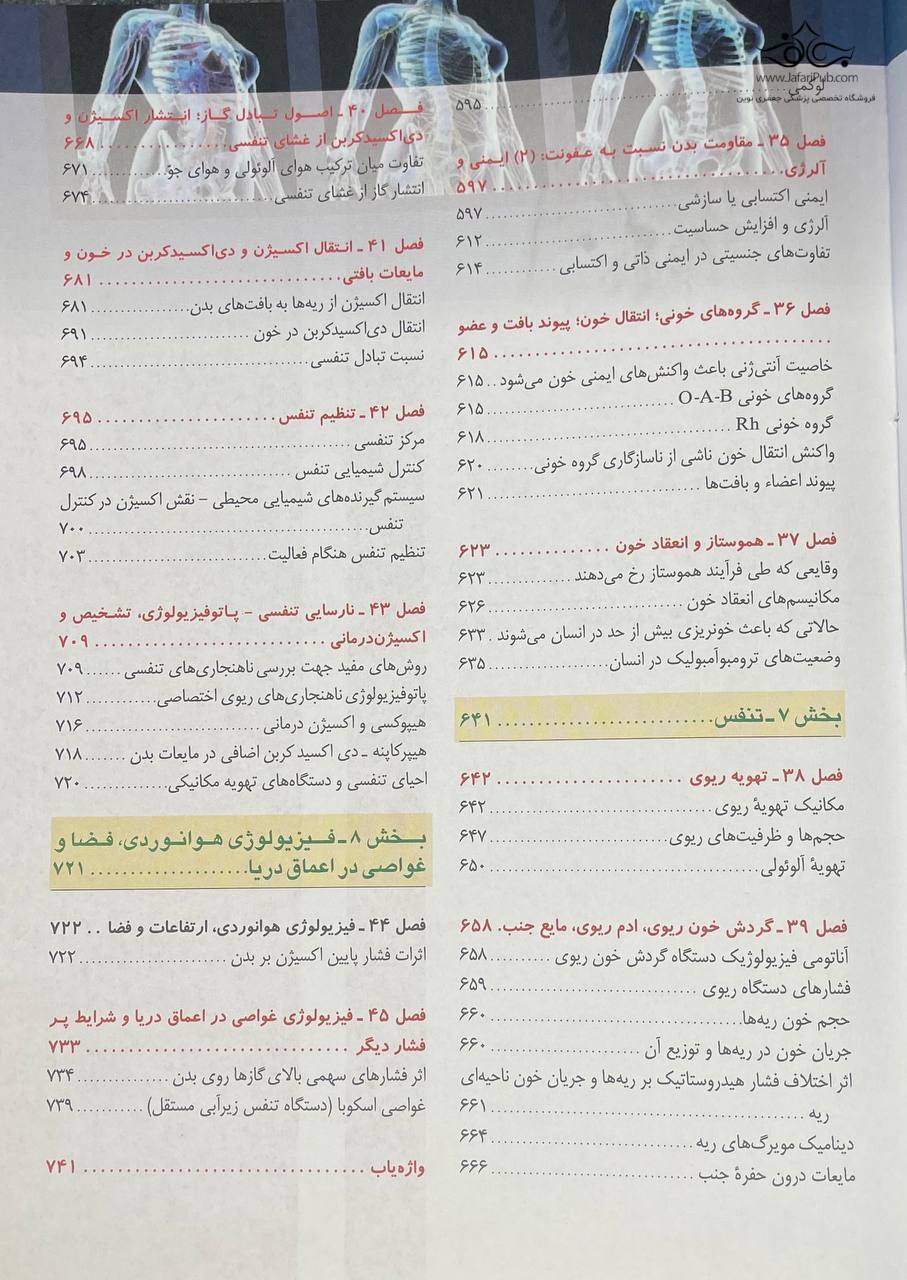 www.JafariPub.com
فروشگاه تخصصی پزشکی جعفری نوین
لوکمی
۵۹۵
فصل ۳۵ ـ مقاومت بدن نسبت به عفونت: (۲) ایمنی و
آلرژی ........ ۵۹۷
ایمنی اکتسابی یا سازشی ........ ۵۹۷
آلرژی و افزایش حساسیت ........ ۶۱۲
تفاوت‌های جنسیتی در ایمنی ذاتی و اکتسابی ........ ۶۱۴
فصل ۳۶ ـ گروه‌های خونی؛ انتقال خون؛ پیوند بافت و عضو
........ ۶۱۵
خاصیت آنتی‌ژنی باعث واکنش‌های ایمنی خون می‌شود .. ۶۱۵
گروه‌های خونی O-A-B ........ ۶۱۵
گروه خونی Rh ........ ۶۱۸
واکنش انتقال خون ناشی از ناسازگاری گروه خونی ........ ۶۲۰
پیوند اعضاء و بافت‌ها ........ ۶۲۱
فصل ۳۷ ـ هموستاز و انعقاد خون ........ ۶۲۳
وقایعی که طی فرآیند هموستاز رخ می‌دهند ........ ۶۲۳
مکانیسم‌های انعقاد خون ........ ۶۲۶
حالاتی که باعث خونریزی بیش از حد در انسان می‌شوند . ۶۳۳
وضعیت‌های ترومبوآمبولیک در انسان ........ ۶۳۵
بخش ۷ ـ تنفس ........ ۶۴۱
فصل ۳۸ ـ تهویه ریوی ........ ۶۴۲
مکانیک تهویۀ ریوی ........ ۶۴۲
حجم‌ها و ظرفیت‌های ریوی ........ ۶۴۷
تهویۀ آلوئولی ........ ۶۵۰
فصل ۳۹ ـ گردش خون ریوی، ادم ریوی، مایع جنب. ۶۵۸
آناتومی فیزیولوژیک دستگاه گردش خون ریوی ........ ۶۵۸
فشارهای دستگاه ریوی ........ ۶۵۹
حجم خون ریه‌ها ........ ۶۶۰
جریان خون در ریه‌ها و توزیع آن ........ ۶۶۰
اثر اختلاف فشار هیدروستاتیک بر ریه‌ها و جریان خون ناحیه‌ای
ریه ........ ۶۶۱
دینامیک مویرگ‌های ریه ........ ۶۶۴
مایعات درون حفرۀ جنب ........ ۶۶۶
فصل ۴۰ ـ اصول تبادل گاز؛ انتشار اکسیژن و
دی‌اکسیدکربن از غشای تنفسی ........ ۶۶۸
تفاوت میان ترکیب هوای آلوئولی و هوای جوّ ........ ۶۷۱
انتشار گاز از غشای تنفسی ........ ۶۷۴
فصل ۴۱ ـ انتقال اکسیژن و دی‌اکسیدکربن در خون و
مایعات بافتی ........ ۶۸۱
انتقال اکسیژن از ریه‌ها به بافت‌های بدن ........ ۶۸۱
انتقال دی‌اکسیدکربن در خون ........ ۶۹۱
نسبت تبادل تنفسی ........ ۶۹۴
فصل ۴۲ ـ تنظیم تنفس ........ ۶۹۵
مرکز تنفسی ........ ۶۹۵
کنترل شیمیایی تنفس ........ ۶۹۸
سیستم گیرنده‌های شیمیایی محیطی – نقش اکسیژن در کنترل
تنفس ........ ۷۰۰
تنظیم تنفس هنگام فعالیت ........ ۷۰۳
فصل ۴۳ ـ نارسایی تنفسی – پاتوفیزیولوژی، تشخیص و
اکسیژن‌درمانی ........ ۷۰۹
روش‌های مفید جهت بررسی ناهنجاری‌های تنفسی ...... ۷۰۹
پاتوفیزیولوژی ناهنجاری‌های ریوی اختصاصی ........ ۷۱۲
هیپوکسی و اکسیژن درمانی ........ ۷۱۶
هیپرکاپنه ـ دی اکسید کربن اضافی در مایعات بدن ....... ۷۱۸
احیای تنفسی و دستگاه‌های تهویه مکانیکی ........ ۷۲۰
بخش ۸ ـ فیزیولوژی هوانوردی، فضا و
غواصی در اعماق دریا ........ ۷۲۱
فصل ۴۴ ـ فیزیولوژی هوانوردی، ارتفاعات و فضا .. ۷۲۲
اثرات فشار پایین اکسیژن بر بدن ........ ۷۲۲
فصل ۴۵ ـ فیزیولوژی غواصی در اعماق دریا و شرایط پر
فشار دیگر ........ ۷۳۳
اثر فشارهای سهمی بالای گازها روی بدن ........ ۷۳۴
غواصی اسکوبا (دستگاه تنفس زیرآبی مستقل) ........ ۷۳۹
واژه‌یاب ........ ۷۴۱